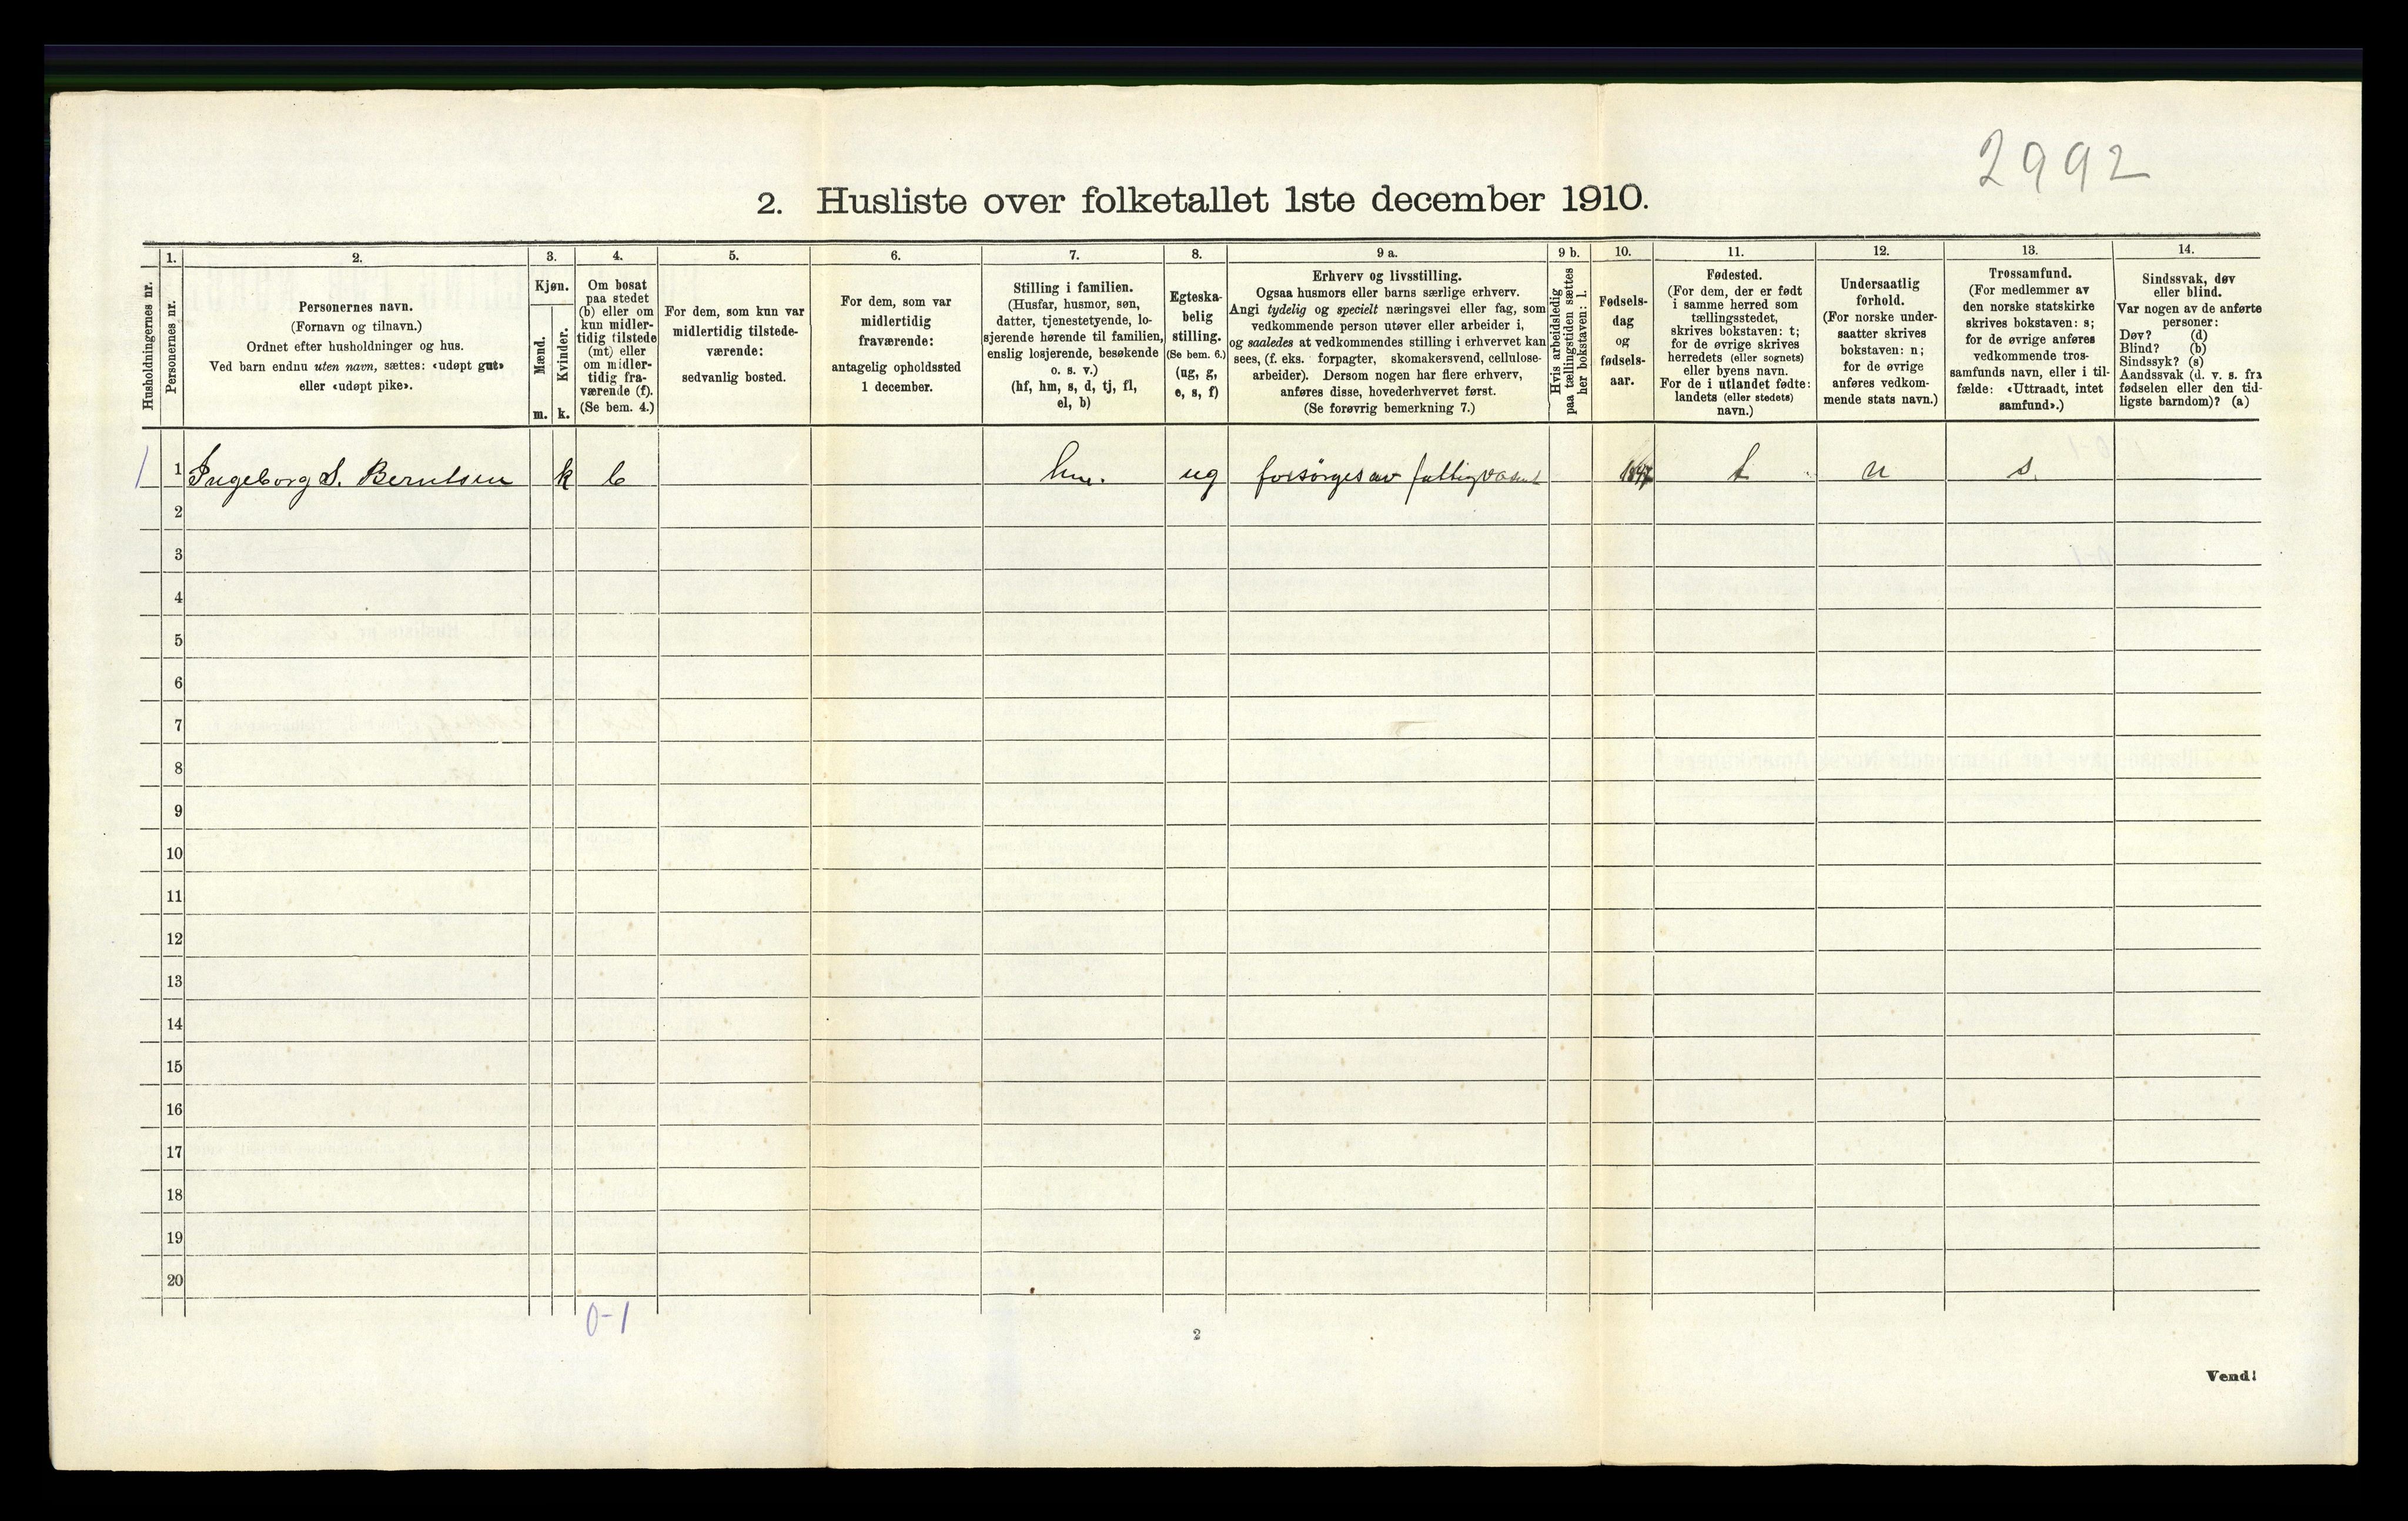 2992
2. Husliste over folketallet 1ste december 1910.
Husholdningernes nr.
1.
Personernes nr.
2.
Personernes navn.
(Fornavn og tilnavn.)
Ordnet efter husholdninger og hus.
Ved barn endnu uten navn, sættes: «udøpt gut»
eller «udøpt pike».
3.
Kjøn.
Mænd.
m.
Kvinder.
k.
4.
Om bosat
paa stedet
(b) eller om
kun midler-
tidig tilstede
(mt) eller
om midler-
tidig fra-
værende (f).
(Se bem. 4.)
5.
For dem, som kun var
midlertidig tilstede-
værende:
sedvanlig bosted.
6.
For dem, som var
midlertidig
fraværende:
antagelig opholdssted
1 december.
7.
Stilling i familien.
(Husfar, husmor, søn,
datter, tjenestetyende, lo-
sjerende hørende til familien,
enslig losjerende, besøkende
o. s. v.)
(hf, hm, s, d, tj, fl,
el, b)
8.
Egteska-
belig
stilling.
(Se bem. 6.)
(ug, g,
e, s, f)
9 a.
Erhverv og livsstilling.
Ogsaa husmors eller barns særlige erhverv.
Angi tydelig og specielt næringsvei eller fag, som
vedkommende person utøver eller arbeider i,
og saaledes at vedkommendes stilling i erhvervet kan
sees, (f. eks. forpagter, skomakersvend, cellulose-
arbeider). Dersom nogen har flere erhverv,
anføres disse, hovederhvervet først.
(Se forøvrig bemerkning 7.)
9 b.
Hvis arbeidsledig
paa tællingstiden sættes
her bokstaven: l.
10.
Fødsels-
dag
og
fødsels-
aar.
11.
Fødested.
(For dem, der er født
i samme herred som
tællingsstedet,
skrives bokstaven: t;
for de øvrige skrives
herredets (eller sognets)
eller byens navn.
For de i utlandet fødte:
landets (eller stedets)
navn.)
12.
Undersaatlig
forhold.
(For norske under-
saatter skrives
bokstaven: n;
for de øvrige
anføres vedkom-
mende stats navn.)
13.
Trossamfund.
(For medlemmer av
den norske statskirke
skrives bokstaven: s;
for de øvrige anføres
vedkommende tros-
samfunds navn, eller i til-
fælde: «Uttraadt, intet
samfund».)
14.
Sindssvak, døv
eller blind.
Var nogen av de anførte
personer:
Døv? (d)
Blind? (b)
Sindssyk? (s)
Aandssvak (d. v. s. fra
fødselen eller den tid-
ligste barndom)? (a)
1 1 Ingeborg S. Berntsen k b hm. ug forsørges av fattigvæsnet 1847 t n s.
2
3
4
5
6
7
8
9
10
11
12
13
14
15
16
17
18
19
20
0-1
2
Vend!